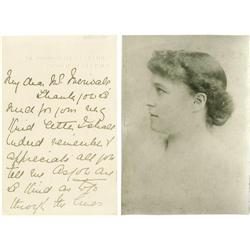 My dear Mr
Thank you so
much for your very
kind letter I shall
indeed remember &
appreciate all you
tell me As you are
so kind as to
through the lines